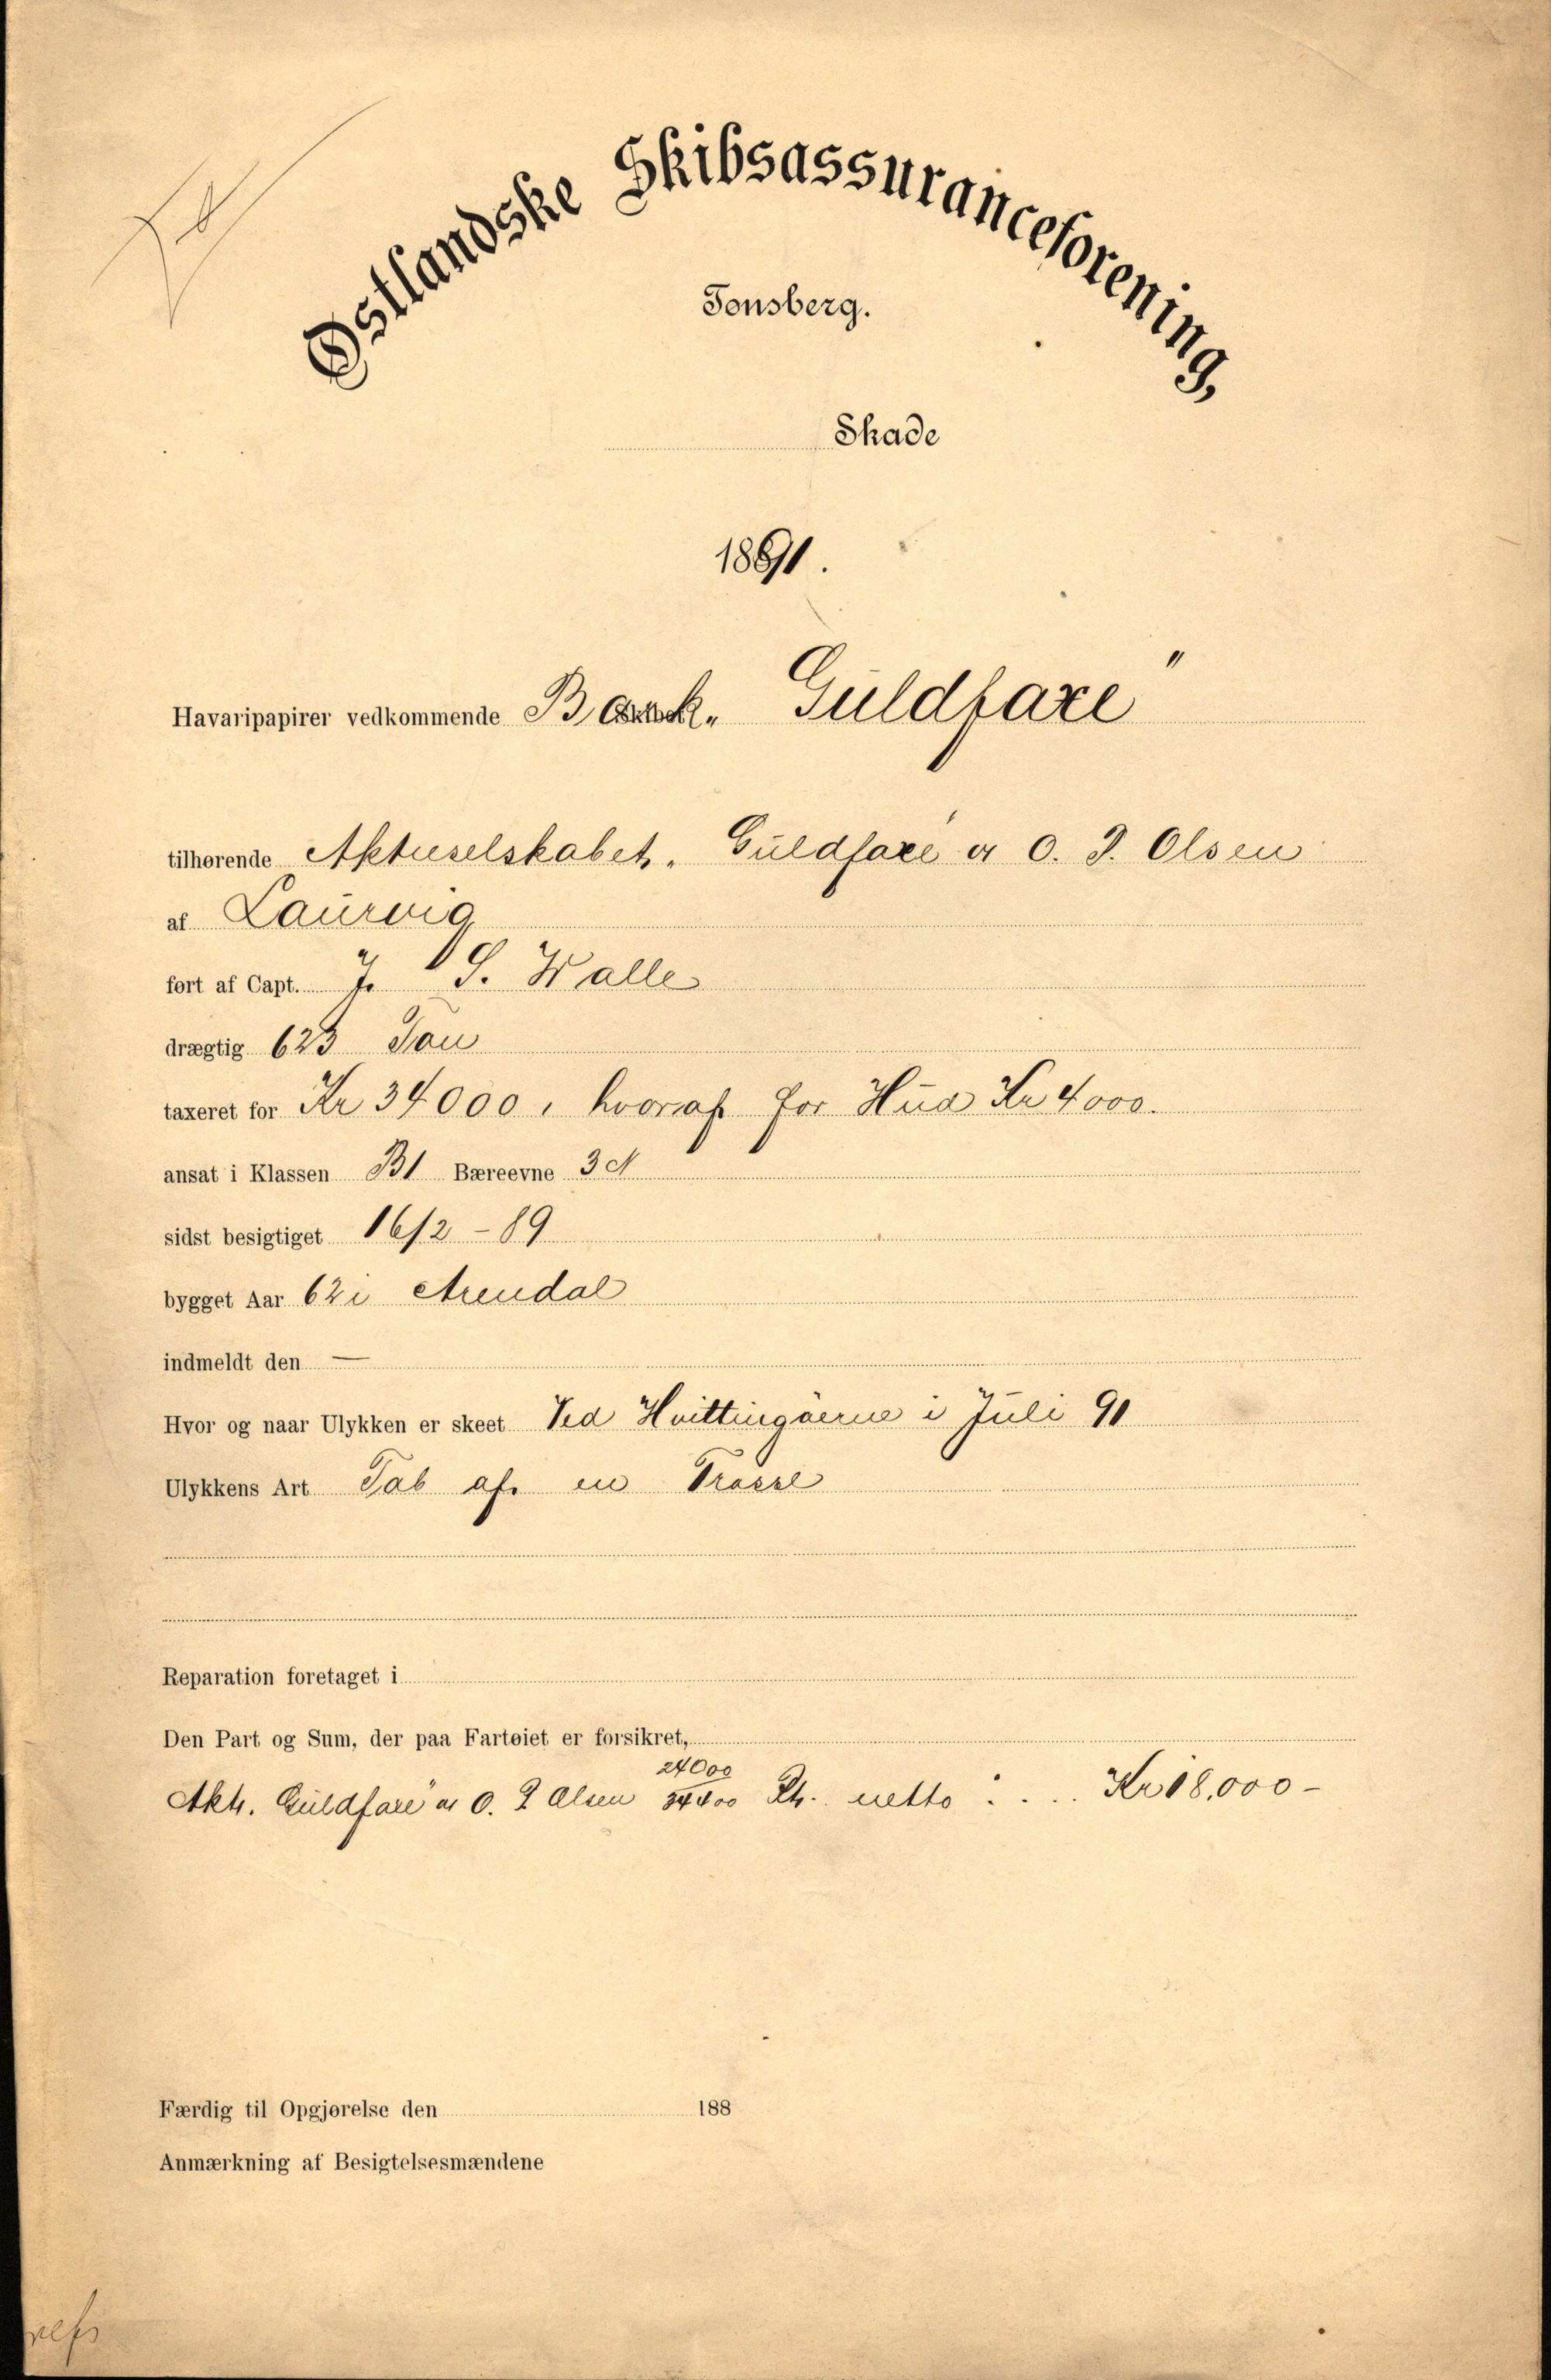 Østlandske Skibsassuranceforening,
Tønsberg.
Skade
1891.
Havaripapirer vedkommende Bark „Guldfaxe"
tilhørende Aktieselskabet „Guldfaxe" og O. J. Olsen
af Laurvig
ført af Capt. J. S. Walle
drægtig 623 Ton
taxeret for Kr 34000, hvoraf for Hud Kr 4000.
ansat i Klassen B1 Bæreevne 3
sidst besigtiget 16/2 - 89
bygget Aar 62 i Arendal
indmeldt den —
Hvor og naar Ulykken er skeet Ved Hvittingøerne i Juli 91
Ulykkens Art Tab af en Trosse
Reparation foretaget i
Den Part og Sum, der paa Fartøiet er forsikret,
Akts. Guldfaxe" og O. J. Olsen 24000/34000 Pt. netto : . . . Kr 18.000 -
Færdig til Opgjørelse den 188
Anmærkning af Besigtelsesmændene